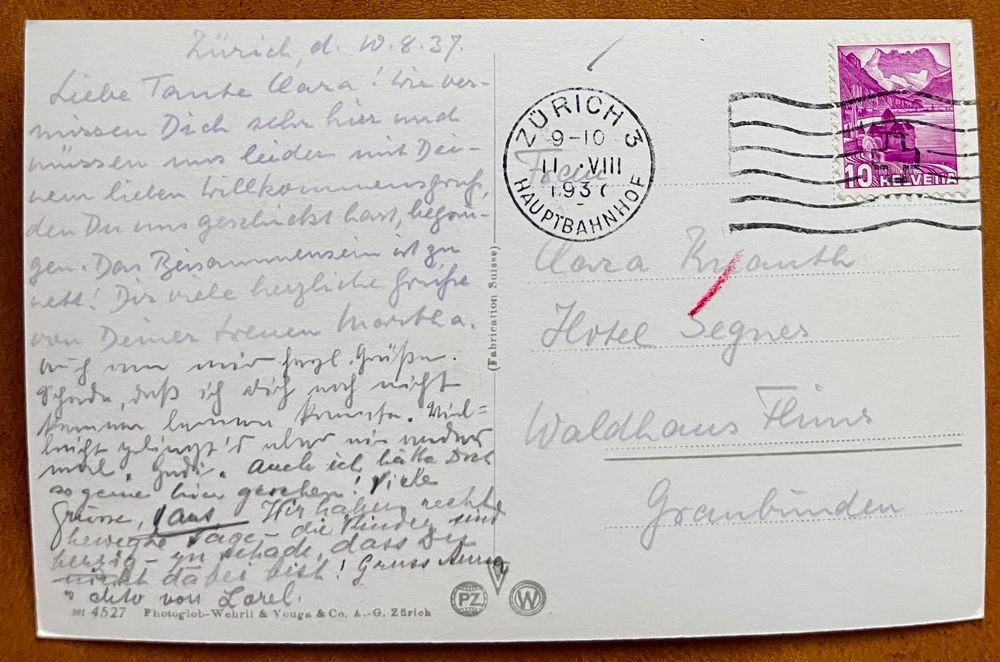 Zürich, d. 10.8.37.
Liebe Tante Clara! Wir ver-
missen Dich sehr hier und
müssen uns leider mit Dei-
nem lieben Willkommensgruß,
den Du uns geschickt hast, begnü-
gen. Das Beisammensein ist zu
nett! Dir viele herzliche Grüße
von Deiner treuen Martha.
Auch von mir herzl. Grüße.
Schade, daß ich Dich noch nicht
kennen lernen konnte. Viel-
leicht gelingt's aber ein ander
mal. Auch ich hätte Dich
so gerne hier gesehen! Viele
Grüsse, Wir haben recht
bewegte Tage - die Kinder sind
herzig - zu schade, dass Du
nicht dabei bist! Gruss Anna
dito von Lorel.
4527 Photoglob-Wehrli & Vouga & Co. A.-G. Zürich
(Fabrication Suisse)
PZ
W
ZÜRICH 3
9-10
11.VIII
1937
HAUPTBAHNHOF
10 HELVETIA
Frau
Clara
Hotel Segnes
Waldhaus Flims
Graubünden